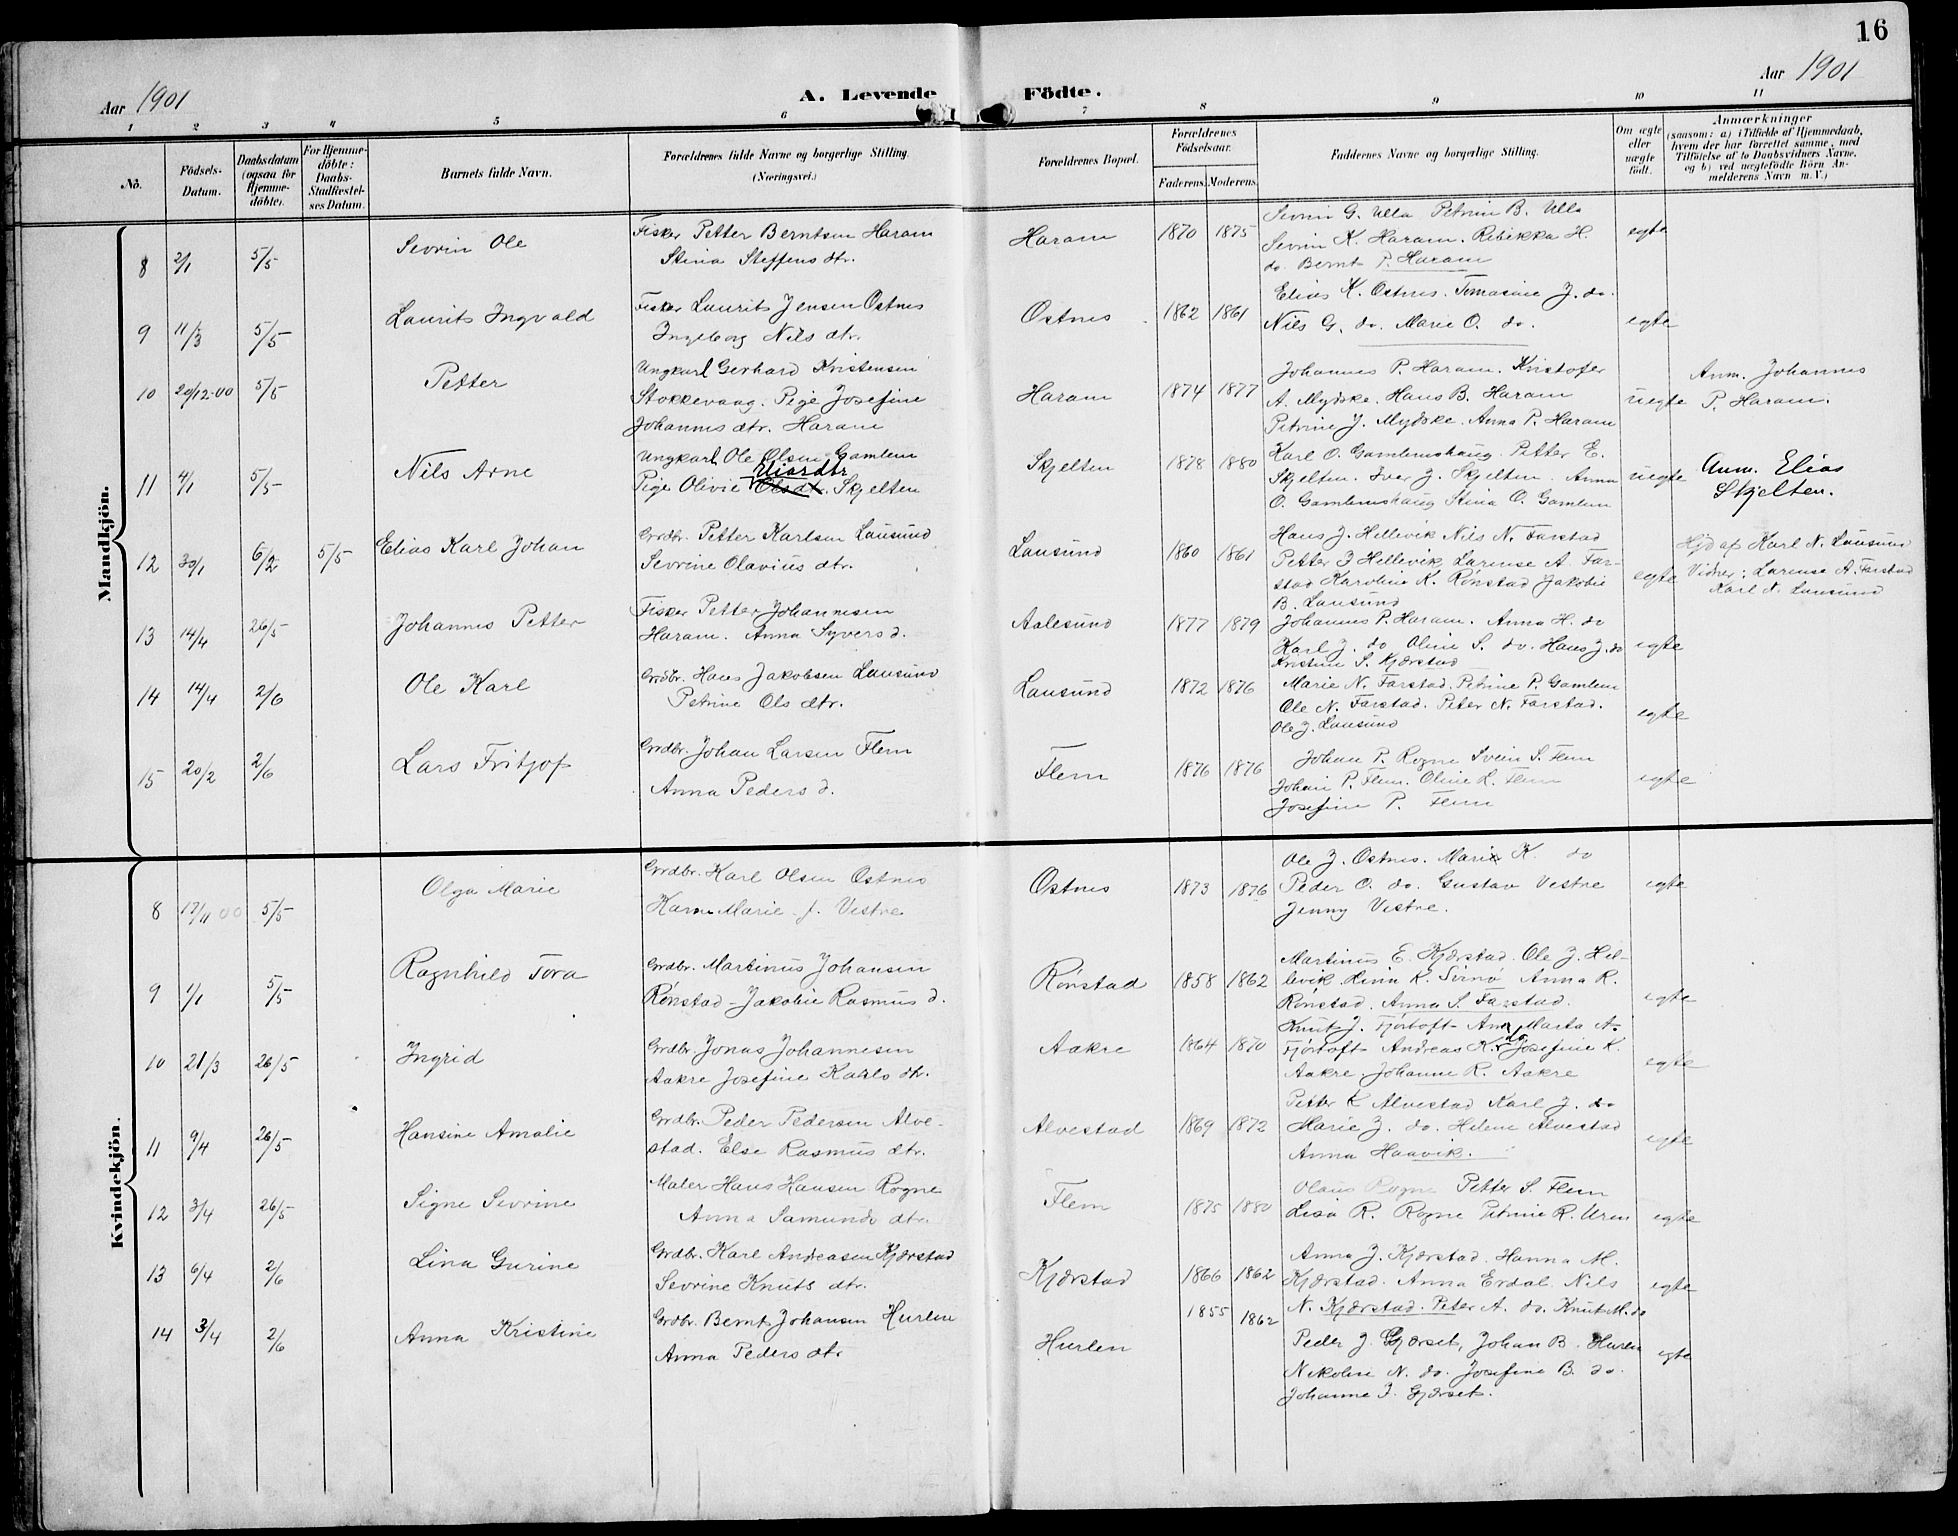 16
Aar 1901
A. Levende Födte.
Aar 1901
1 2 3 4 5 6 7 8 9 10 11
No.
Födsels-Datum.
Daabsdatum (ogsaa for Hjemmedöbte).
For Hjemmedöbte: Daabs-Stadfæstelses Datum.
Barnets fulde Navn.
Forældrenes fulde Navne og borgerlige Stilling.
(Næringsvei.)
Forældrenes Bopæl.
Forældrenes Födselsaar.
Faderens. Moderens.
Faddernes Navne og borgerlige Stilling.
Om ægte eller uægte födt.
Anmærkninger
(saasom: a) i Tilfælde af Hjemmedaab,
hvem der har forrettet samme, med
Tilföielse af to Daabsvidners Navne,
og b) ved uægtefödte Börn Anmelderens Navn m. V.)
Mandkjön.
8 2/1 5/5 Sevrin Ole
Fisker Petter Berntsen Haram
Stina Steffens dtr.
Haram 1870 1875
Sevrin G. Ulla Petrine B. Ulla
Sevrin K. Haram. Rebikka H.
do. Bernt P. Haram
egte
9 11/3 5/5 Laurits Ingvald
Fisker Laurits Jensen Ostnes
Ingeborg Nils dtr.
Ostnes 1862 1861
Elias K. Ostnes. Tomasine J. do.
Nils G. do. Marie O. do.
egte
10 20/12-00 5/5 Petter
Ungkarl Gerhard Kristensen
Stokkevaag. Pige Josefine
Johannes dtr. Haram
Haram 1874 1877
Johannes P. Haram. Kristofer
A. Mydske. Hans B. Haram
Petrine J. Mydske. Anna P. Haram
uegte
Anm. Johannes
P. Haram.
11 4/1 5/5 Nils Arne
Ungkarl Ole Olsen Gamlem
Eliasdtr
Pige Olivie Olsdtr. Skjelten
Skjelten 1878 1880
Karl O. Gamlemshaug. Petter E.
Skjelten. Iver J. Skjelten. Anna
O. Gamlemshaug Stina O. Gamlem
uegte
Anm. Elias
Skjelten.
12 30/1 6/2 5/5 Elias Karl Johan
Grdbr. Petter Karlsen Lausund
Sevrine Olavius dtr.
Lausund 1860 1861
Hans J. Hellevik Nils N. Farstad
Petter J Hellevik, Larense A. Far-
stad Karoline K. Rønstad Jakobie
B. Lausund
egte
Hjd af Karl N. Lausund
Vidner: Larense A. Farstad
Karl N. Lausund
13 14/4 26/5 Johannes Petter
Fisker Petter Johannesen
Haram. Anna Syvers d.
Aalesund 1877 1879
Johannes P. Haram. Anna H. do
Karl J. do Oline S. do. Hans J. do
Kristine S. Kjærstad
egte
14 14/4 2/6 Ole Karl
Grdbr. Hans Jakobsen Lausund
Petrine Ols dtr.
Lausund 1872 1876
Marie N. Farstad. Petrine P. Gamlem
Ole N. Farstad. Peter N. Farstad.
Ole J. Lausund
egte
15 20/2 2/6 Lars Fritjof
Grdbr. Johan Larsen Flem
Anna Peders d.
Flem 1876 1876
Johan P. Rogne Svein S. Flem
Johan P. Flem. Oline L. Flem
Josefine P. Flem
egte
Kvindekjön.
8 17/11 00 5/5 Olga Marie
Grdbr. Karl Olsen Ostnes
Karn Marie J. Vestre
Ostnes 1873 1876
Ole J. Ostnes. Marie K. do
Peder O. do. Gustav Vestre
Jenny Vestre.
egte
9 1/1 5/5 Ragnhild Tora
Grdbr. Martinus Johansen
Rønstad - Jakobie Rasmus d.
Rønstad 1858 1862
Martinus E. Kjærstad. Ole J. Hel-
levik. Rina K. Sirnø Anna R.
Rønstad. Anna S. Farstad.
egte
10 21/3 26/5 Ingrid
Grdbr Jonas Johannesen
Aakre Josefine Karls dtr.
Aakre 1864 1870
Knut J. Fjørtoft Ane Marta A.
Fjørtoft Andreas K. do Josefine K.
Aakre. Johanne R. Aakre
egte
11 9/4 26/5 Hansine Amalie
Grdbr. Peder Pedersen Alve-
stad. Else Rasmus dtr.
Alvestad 1869 1872
Petter K Alvestad Karl J. do
Marie J. do. Helene Alvestad
Anna Haavik.
egte
12 3/4 26/5 Signe Sevrine
Maler Hans Hansen Rogne
Anna Samunds dtr.
Flem 1875 1880
Olaus Rogne Petter S. Flem
Lisa R. Rogne Petrine R. Uren
egte
13 6/4 2/6 Lina Gurine
Grdbr. Karl Andreasen Kjærstad
Sevrine Knuts dtr.
Kjærstad 1866 1862
Anna J. Kjærstad. Hanna M.
Kjærstad. Anna Erdal. Nils
N. Kjærstad. Peter A. do. Knut M. do
egte
14 3/4 2/6 Anna Kristine
Grdbr. Bernt Johansen Hurlen
Anna Peders dtr
Hurlen 1855 1862
Peder J. Gjærset, Johan B. Hurlen
Nikoline N. do. Josefine B. do.
Johanne J. Gjærset.
egte